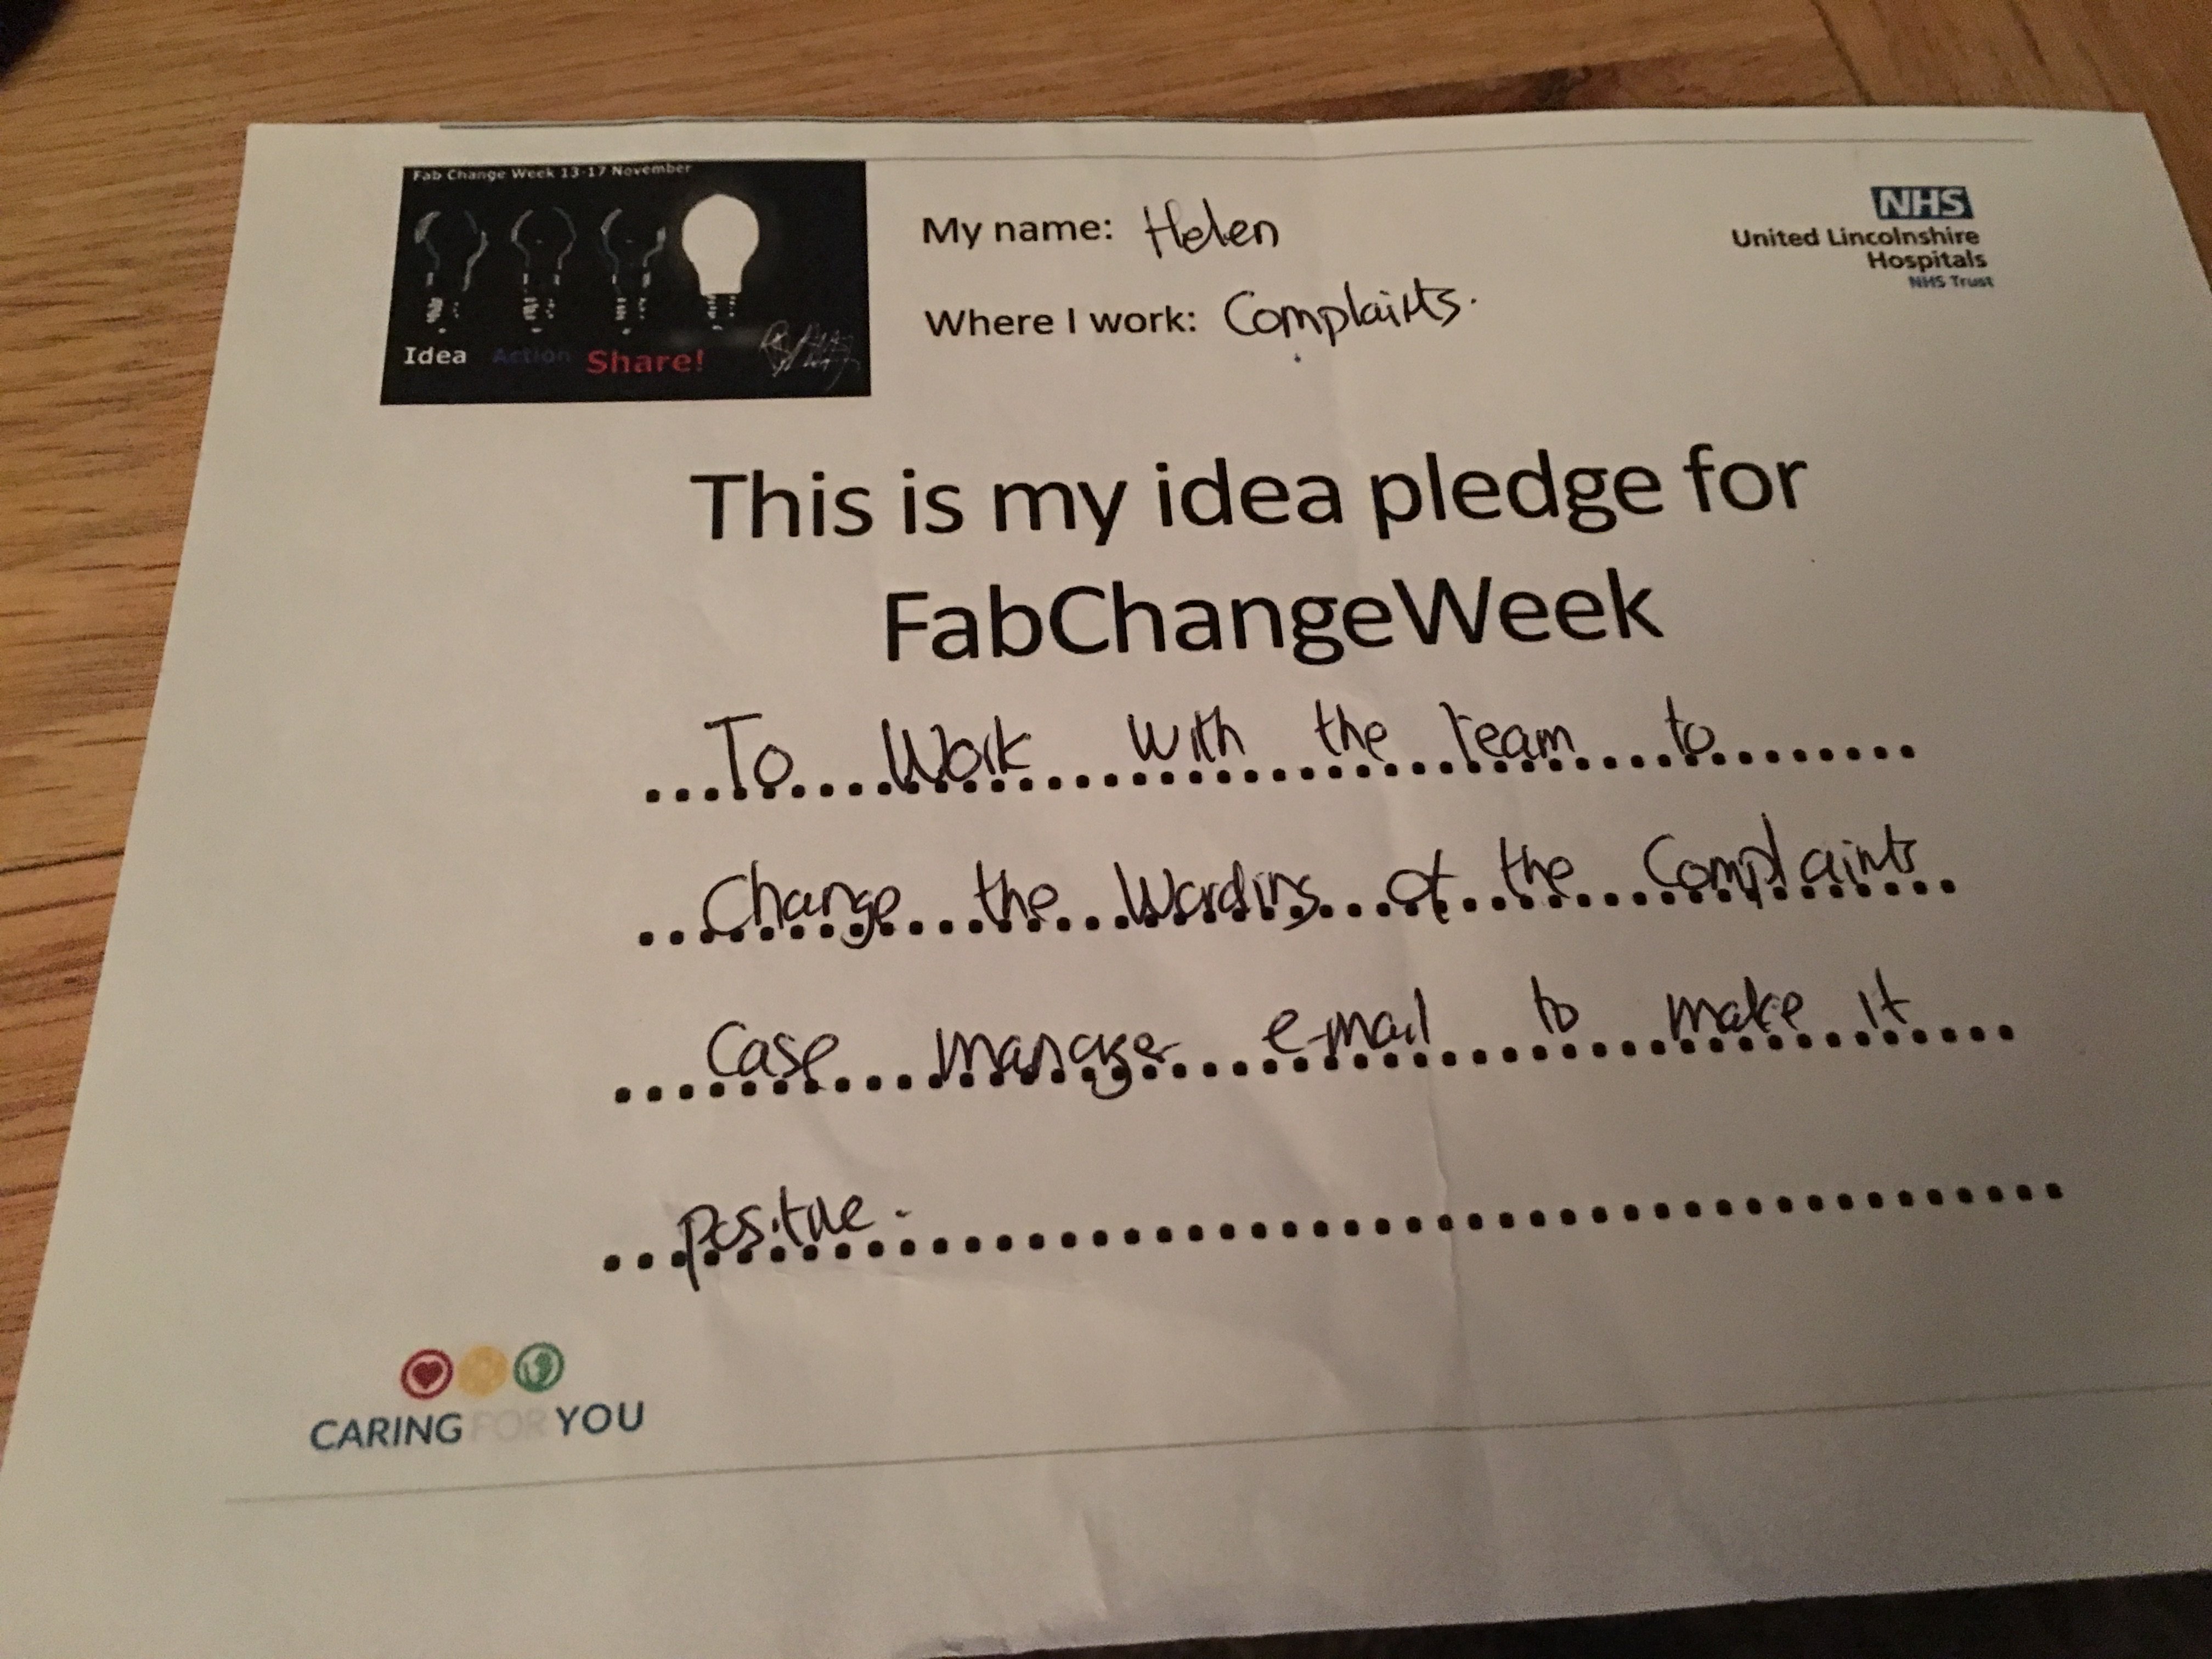 Fab Change Week 13-17 November
Idea Action Share!
My name: Helen
Where I work: Complaints.
NHS
United Lincolnshire
Hospitals
NHS Trust
This is my idea pledge for
FabChangeWeek
To Work with the team to
Change the Wording of the Complaints
Case manager e-mail to make it
positive.
CARING FOR YOU